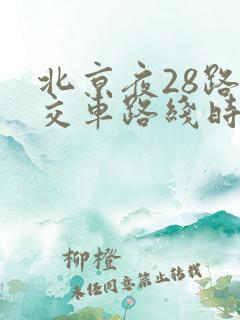 北京夜28路
交车路线时
柳橙
未经同意禁止转载